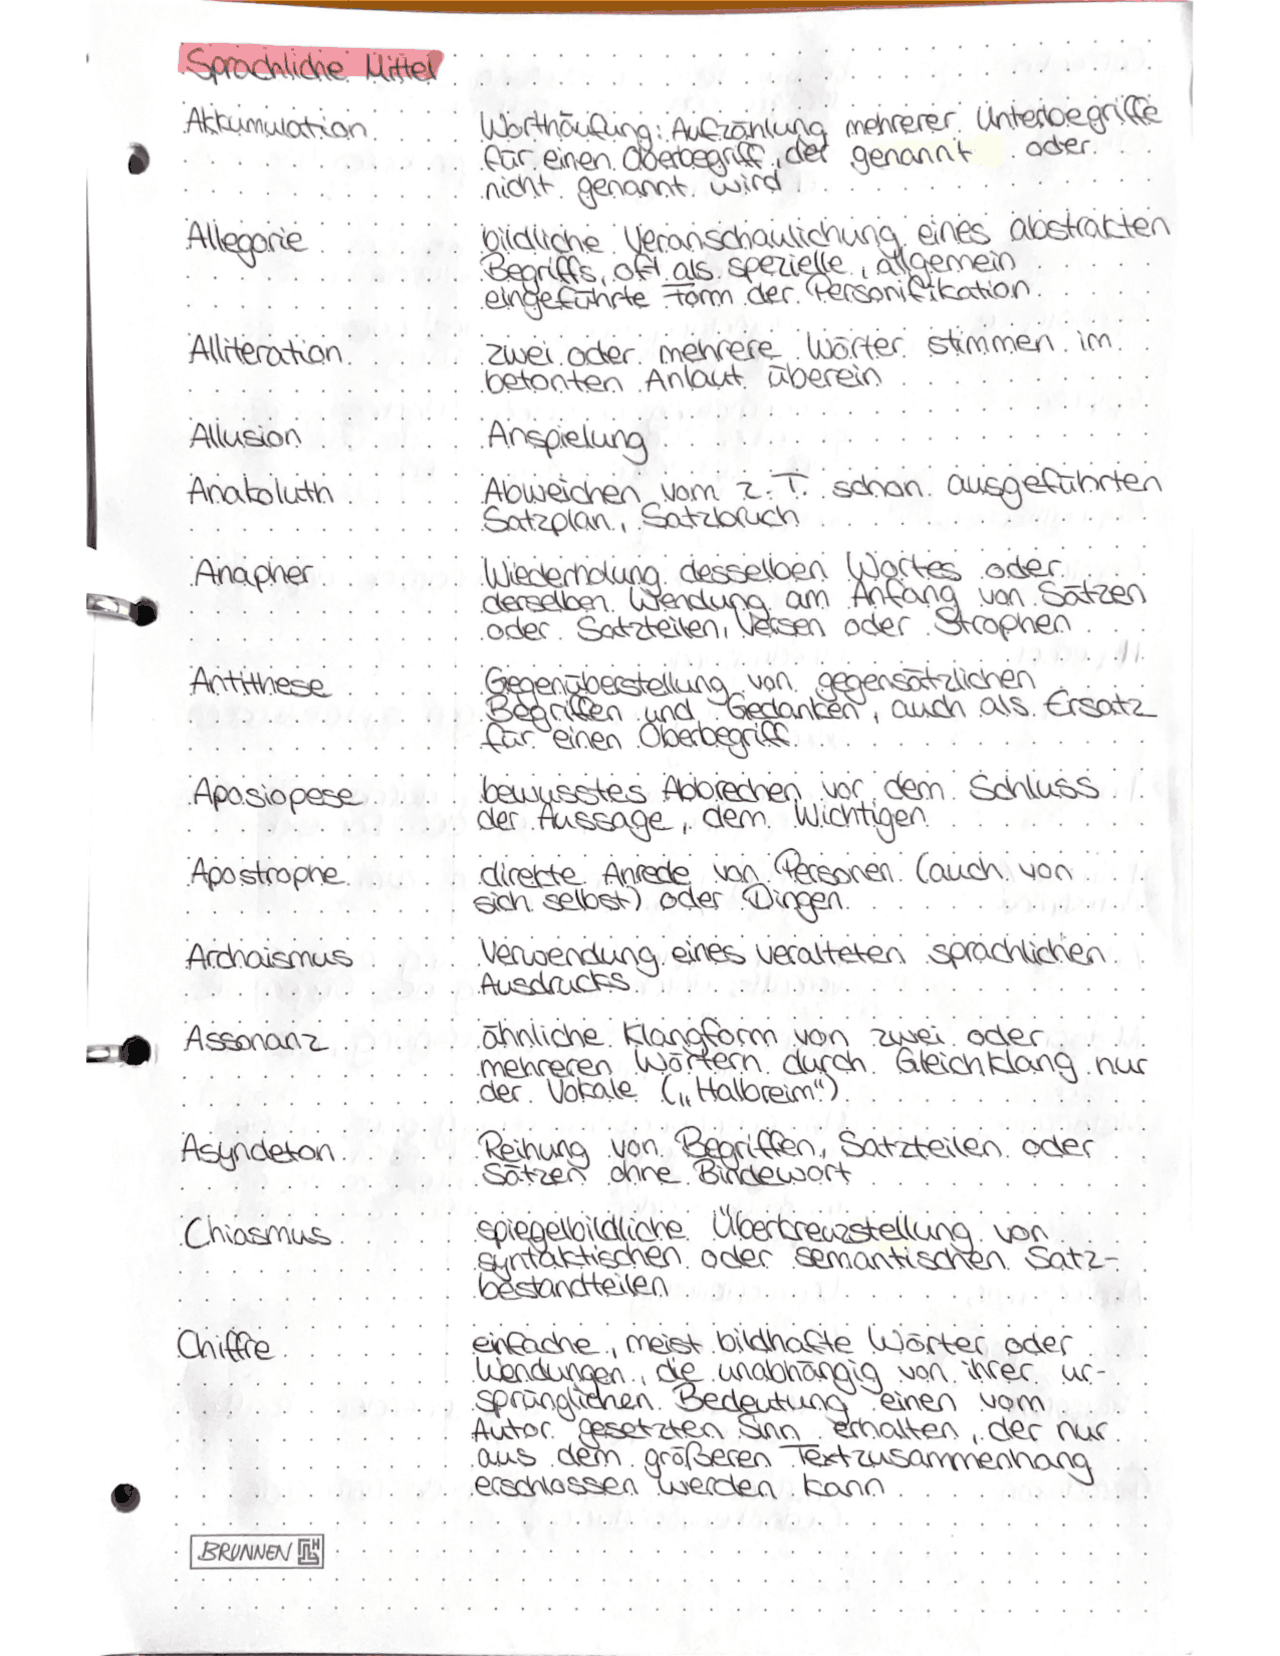 Sprachliche Mittel
Akkumulation Worthäufung: Aufzählung mehrerer Unterbegriffe
für einen Oberbegriff, der genannt oder
nicht genannt wird
Allegorie bildliche Veranschaulichung eines abstrakten
Begriffs, oft als spezielle, allgemein
eingeführte Form der Personifikation
Alliteration zwei oder mehrere Wörter stimmen im
betonten Anlaut überein
Allusion Anspielung
Anakoluth Abweichen vom z. T. schon ausgeführten
Satzplan, Satzbruch
Anapher Wiederholung desselben Wortes oder
derselben Wendung am Anfang von Sätzen
oder Satzteilen, Versen oder Strophen
Antithese Gegenüberstellung von gegensätzlichen
Begriffen und Gedanken, auch als Ersatz
für einen Oberbegriff
Aposiopese bewusstes Abbrechen vor dem Schluss
der Aussage, dem Wichtigen
Apostrophe direkte Anrede von Personen (auch von
sich selbst) oder Dingen
Archaismus Verwendung eines veralteten sprachlichen
Ausdrucks
Assonanz ähnliche Klangform von zwei oder
mehreren Wörtern durch Gleichklang nur
der Vokale („Halbreim“)
Asyndeton Reihung von Begriffen, Satzteilen oder
Sätzen ohne Bindewort
Chiasmus spiegelbildliche Überkreuzstellung von
syntaktischen oder semantischen Satz-
bestandteilen
Chiffre einfache, meist bildhafte Wörter oder
Wendungen, die unabhängig von ihrer ur-
sprünglichen Bedeutung einen vom
Autor gesetzten Sinn erhalten, der nur
aus dem größeren Textzusammenhang
erschlossen werden kann
BRUNNEN